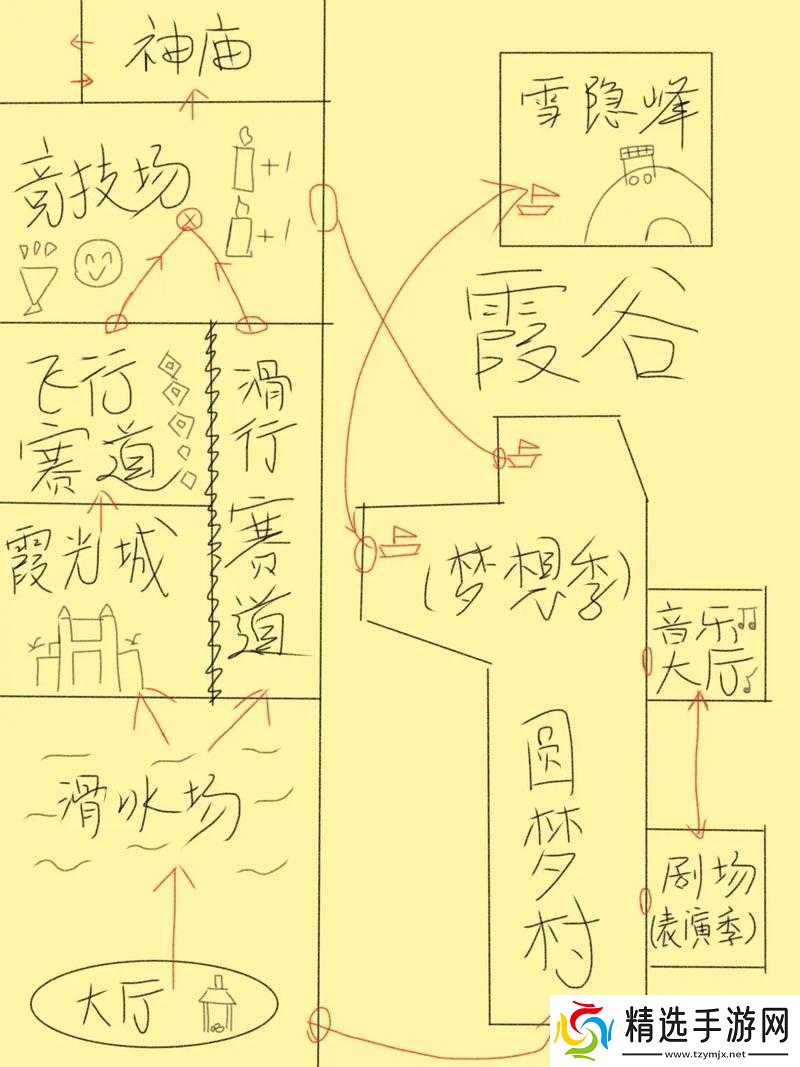 神庙
竞技场
+1
+1
飞行
赛道
滑行赛道
霞光城
滑冰场
大厅
雪隐峰
霞谷
(梦想季)
音乐
大厅
圆梦村
剧场
(表演季)
精选手游网
www.tzymjx.net